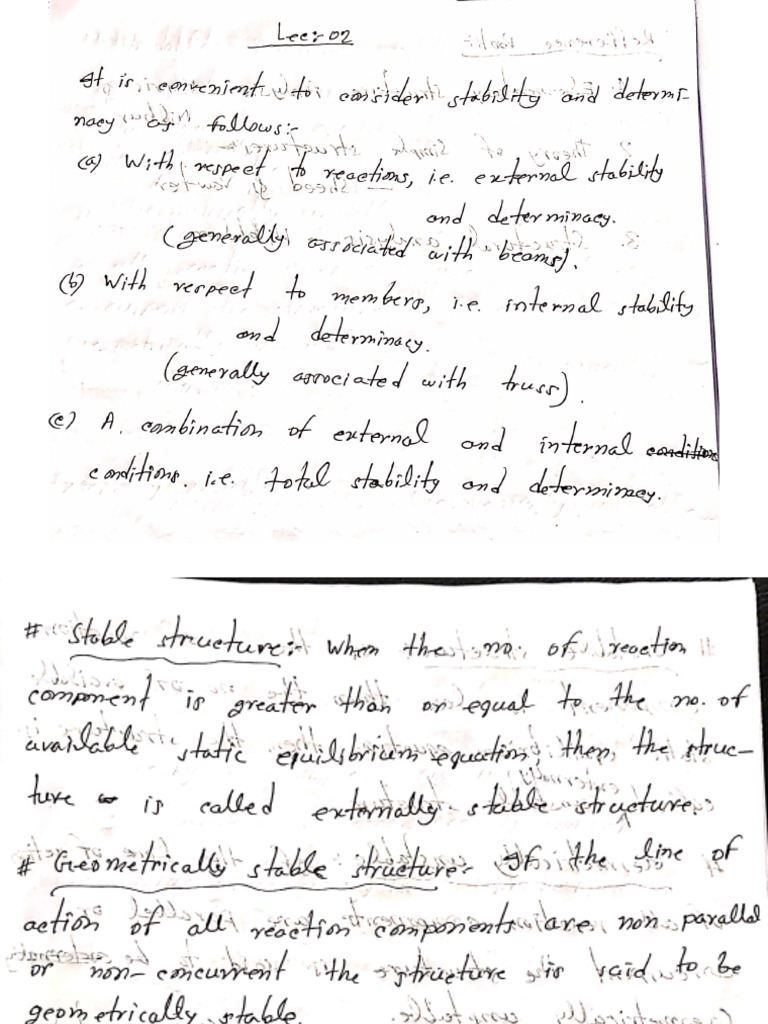 Lec: 02
It is convenient to consider stability and determi-
nacy as follows:-
(a) With respect to reactions, i.e. external stability
and determinacy.
(generally associated with beams).
(b) With respect to members, i.e. internal stability
and determinacy.
(generally associated with truss).
(c) A combination of external and internal condition
conditions. i.e. total stability and determinacy.
# Stable structure:- When the no. of reaction
component is greater than or equal to the no. of
available static equilibrium equation, then the struc-
ture is called externally stable structure.
# Geometrically stable structure:- If the line of
action of all reaction components are non parallel
or non-concurrent the structure is said to be
geometrically stable.